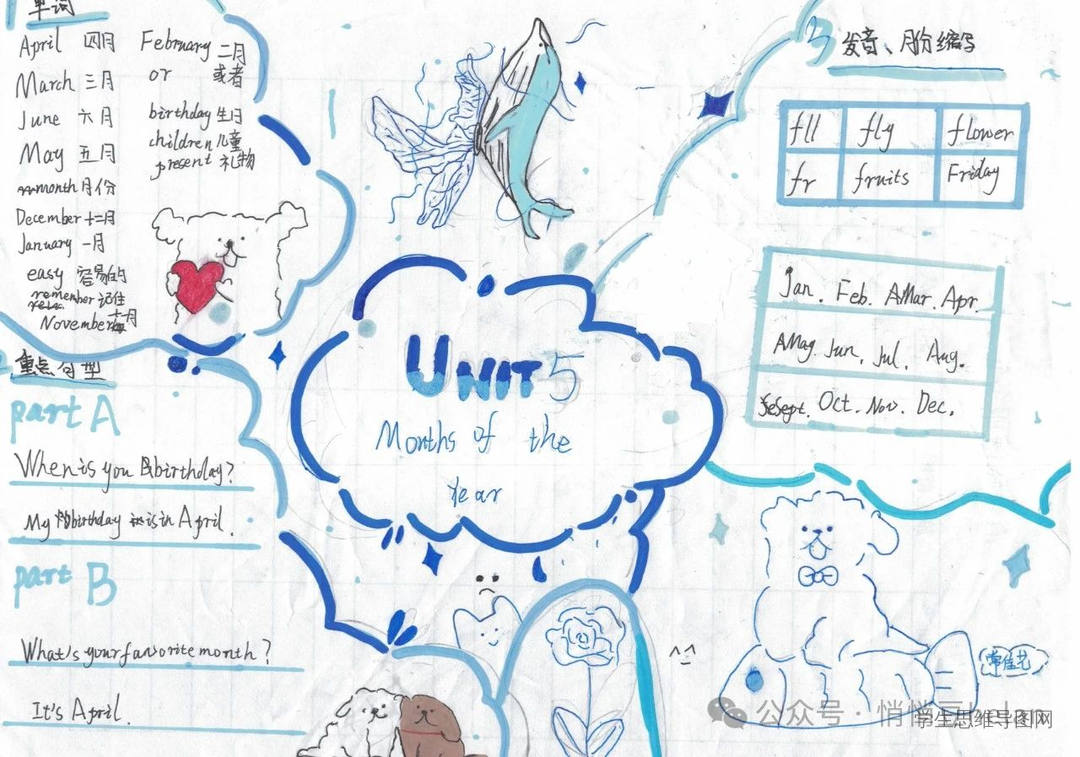 单词
April 四月
March 三月
June 六月
May 五月
month 月份
December 十二月
January 一月
easy 容易的
remember 记住
November 十一月
February 二月
or 或者
birthday 生日
children 儿童
present 礼物
重点句型
part A
When is you birthday?
My birthday is in April.
part B
What's your favsorite month?
It's April.
UNIT 5
Months of the
Year
发音、月份缩写
fll fly flower
fr fruits Friday
Jan. Feb. Mar. Apr.
May. Jun. Jul. Aug.
Sept. Oct. Nov. Dec.
^-^
公众号
学生思维导图网